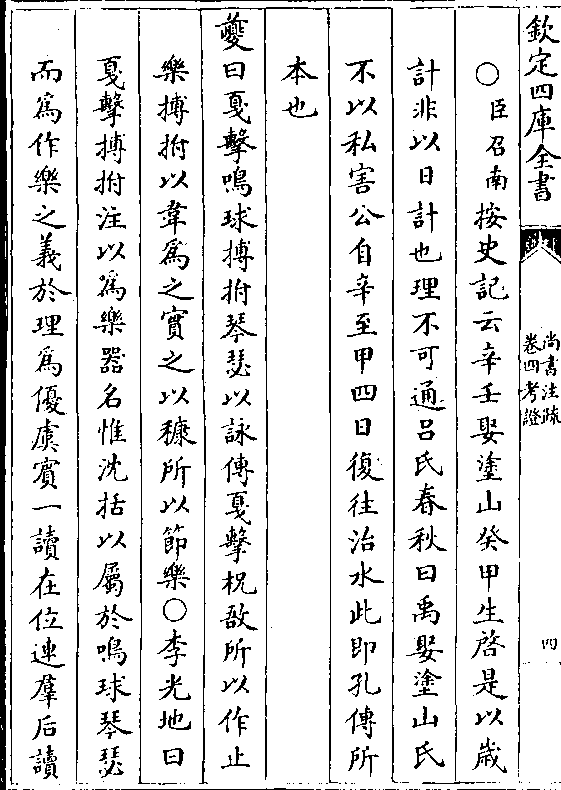 欽定四庫全書
尚書注疏
卷四考證
四
○臣召南按史記云辛壬娶塗山癸甲生啓是以歲
計非以日計也理不可通呂氏春秋曰禹娶塗山氏
不以私害公自辛至甲四日復往治水此即孔傳所
本也
夔曰戛擊鳴球搏拊琴瑟以詠傳戛擊柷敔所以作止
樂搏拊以韋爲之實之以糠所以節樂○李光地曰
戛擊搏拊注以爲樂器名惟沈括以屬於鳴球琴瑟
而爲作樂之義於理爲優虞賓一讀在位連羣后讀